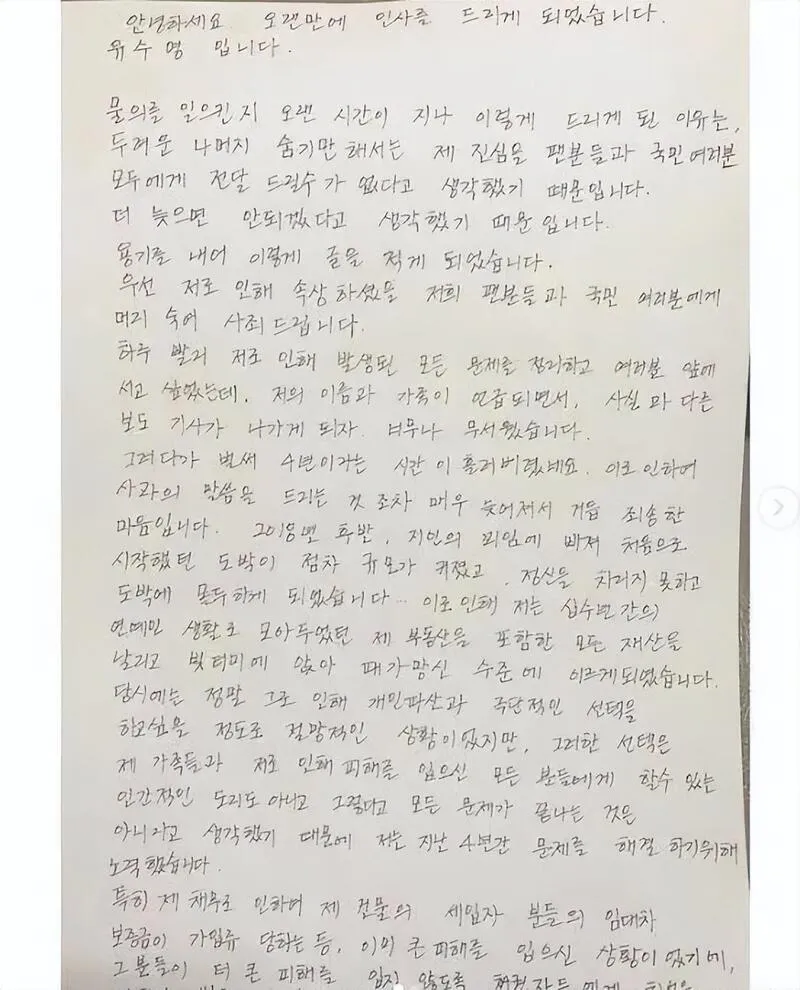 안녕하세요. 오랜만에 인사를 드리게 되었습니다.
유수영 입니다.
물의를 일으킨지 오랜 시간이 지나 이렇게 드리게 된 이유는,
두려운 나머지 숨기만 해서는 제 진심을 팬분들과 국민 여러분
모두에게 전달 드릴수가 없다고 생각했기 때문입니다.
더 늦으면 안되겠다고 생각했기 때문입니다.
용기를 내어 이렇게 글을 적게 되었습니다.
우선 저로 인해 속상하셨을 저희 팬분들과 국민 여러분에게
머리 숙여 사죄드립니다.
하루 빨리 저로 인해 발생된 모든 문제를 정리하고 여러분 앞에
서고 싶었는데, 저의 이름과 가족이 언급되면서, 사실과 다른
보도 기사가 나가게 되자 너무나 무서웠습니다.
그러다가 벌써 4년이라는 시간이 흘러버렸네요. 이로 인하여
사과의 말씀을 드리는 것 조차 매우 늦어져서 거듭 죄송한
마음입니다. 2018년 후반, 지인의 꾀임에 빠져 처음으로
시작했던 도박이 점차 규모가 커졌고, 정신을 차리지 못하고
도박에 몰두하게 되었습니다... 이로 인해 저는 십수년간의
연예인 생활로 모아두었던 제 부동산을 포함한 모든 재산을
날리고 빚더미에 앉아 패가망신 수준에 이르게되었습니다.
당시에는 정말 그로 인해 개인파산과 극단적인 선택을
하고싶을 정도로 절망적인 상황이었지만, 그러한 선택은
제 가족들과 저로 인해 피해를 입으신 모든 분들에게 할수 있는
인간적인 도리도 아니고 그렇다고 모든 문제가 끝나는 것은
아니라고 생각했기 때문에 저는 지난 4년간 문제를 해결하기위해
노력했습니다.
특히 제 채무로 인하여 제 건물의 세입자 분들의 임대차
보증금이 가압류 당하는 등, 이외 큰 피해를 입으신 상황이었기에,
그분들이 더 큰 피해를 입지 않도록